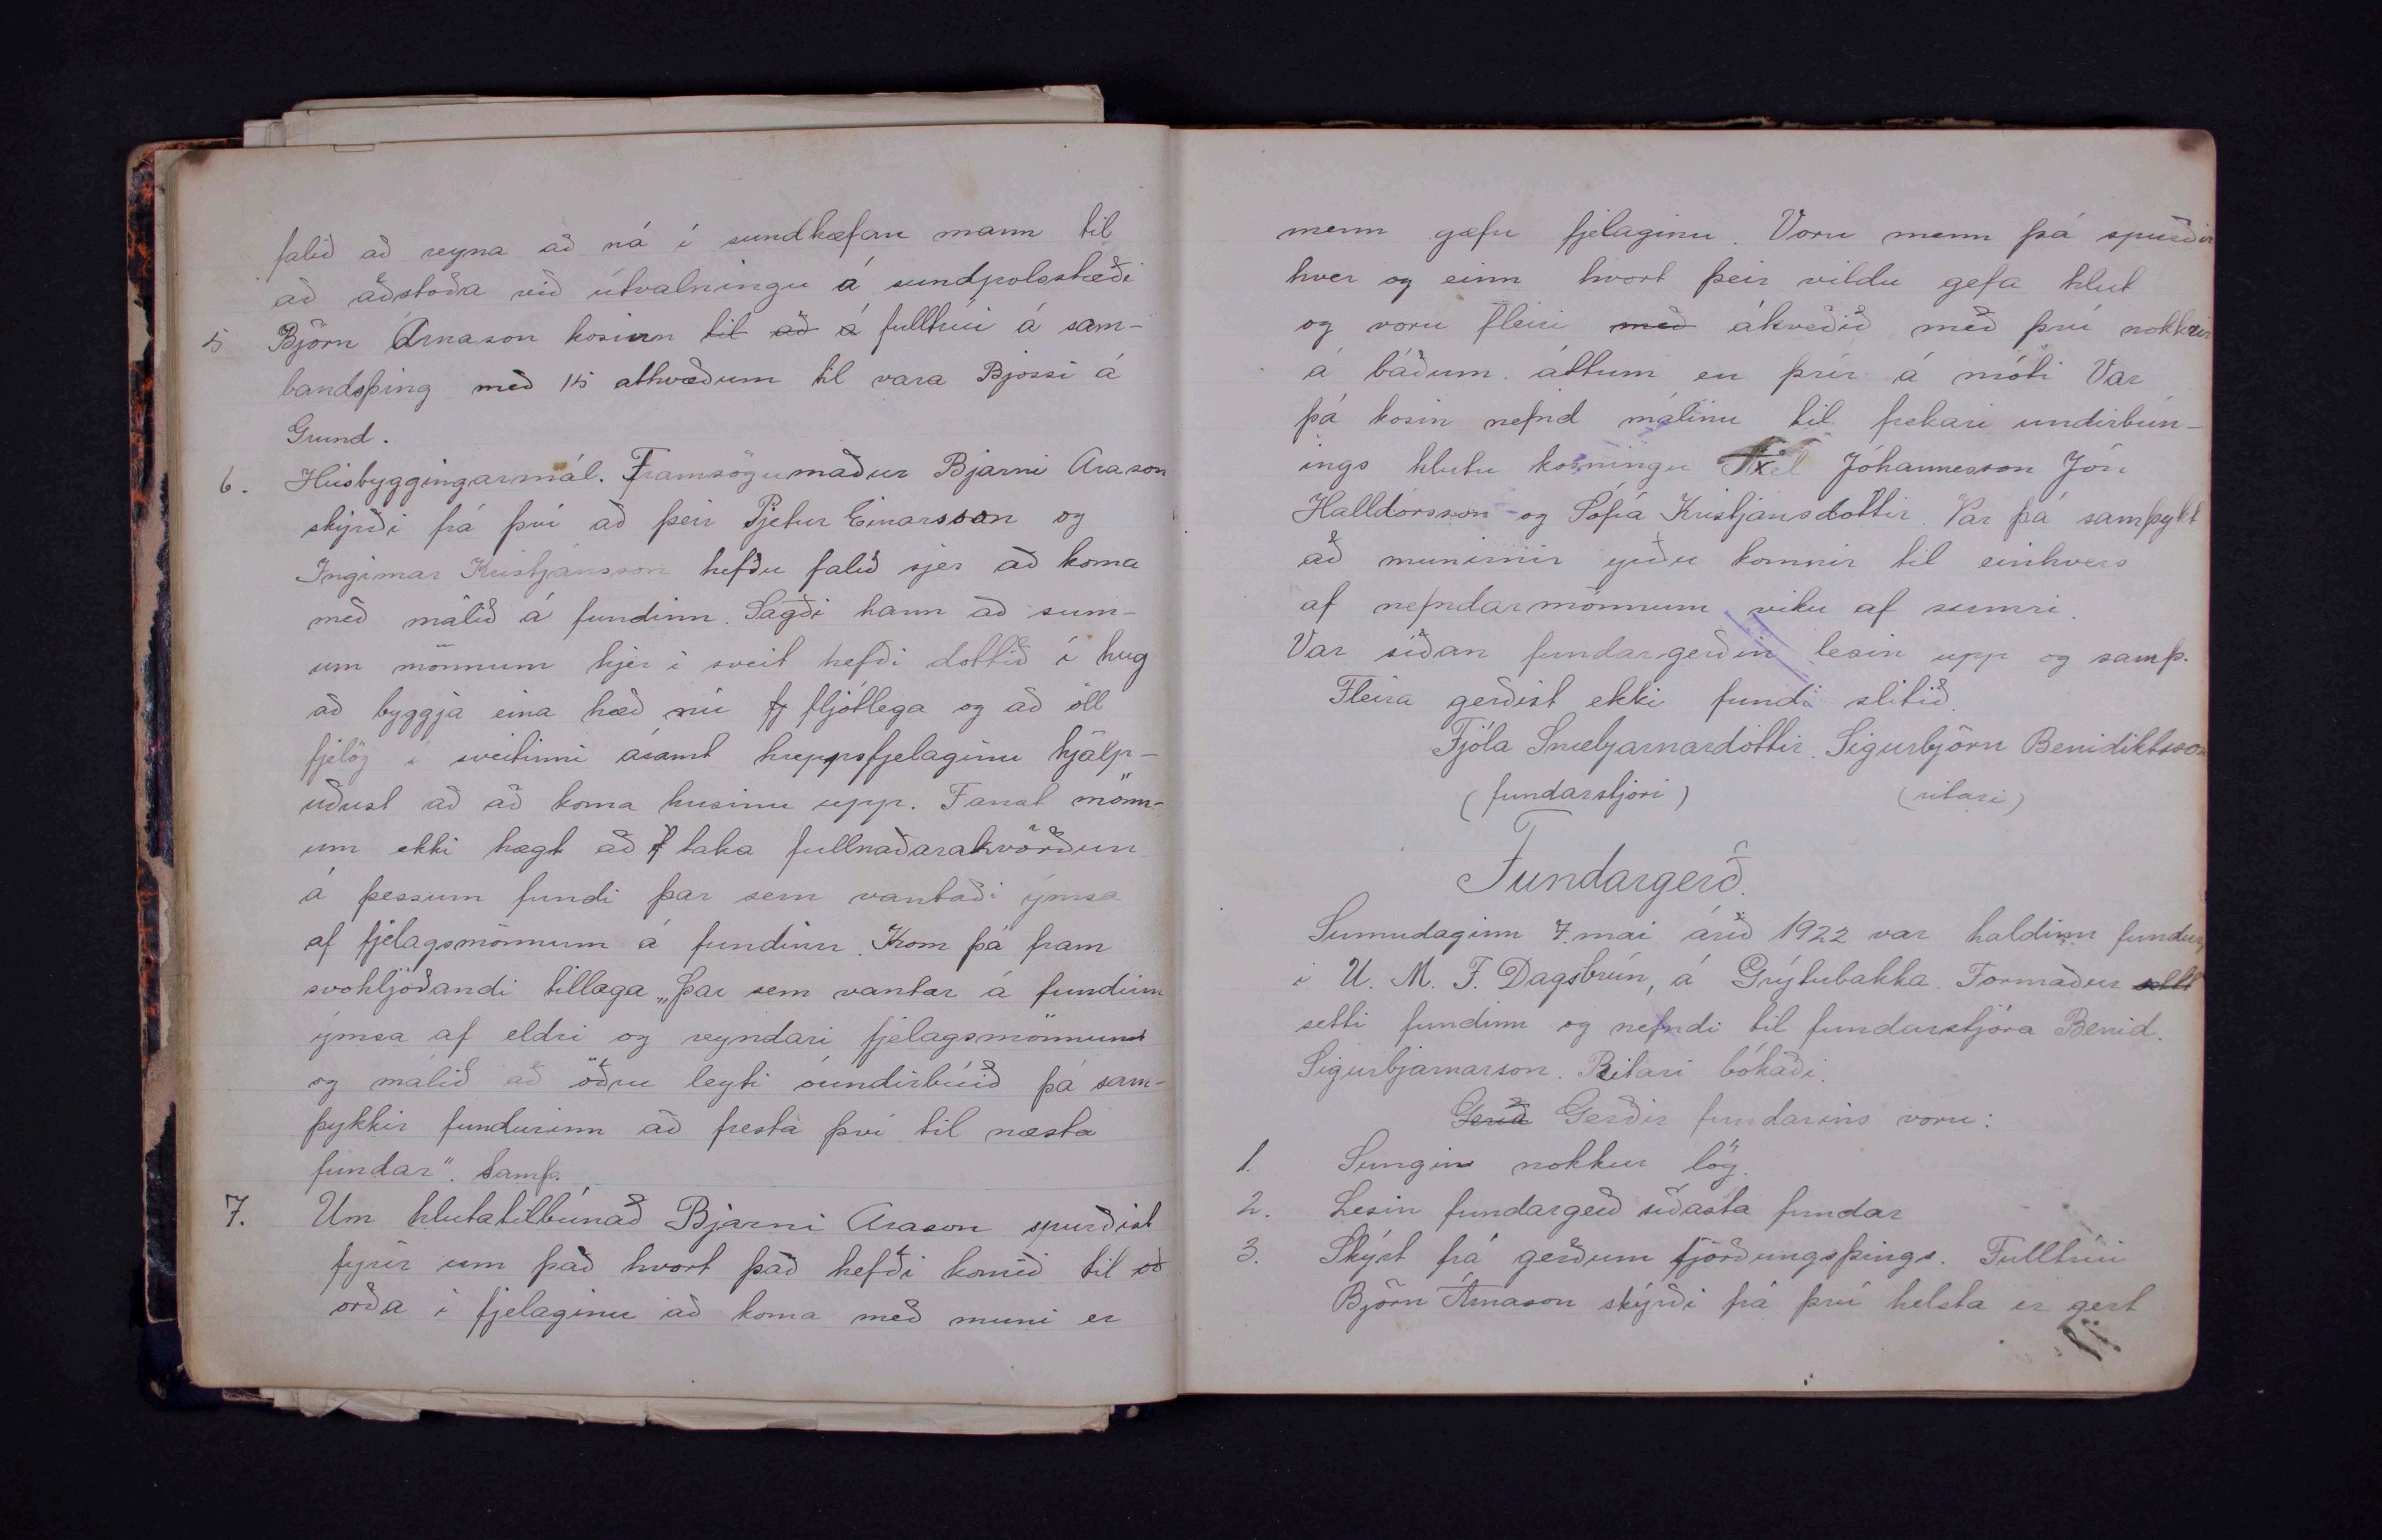 falið að reyna að ná í sundhæfan mann til
að aðstoða við útvalningu á sundpolsstæði
5 Björn Árnason kosinn til að á fulltrúi á sam-
bandsþing með 15 atkvæðum til vara Bjossi á
Grund.
6. Húsbyggingarmál. Framsögumaður Bjarni Arason
skýrði frá því að þeir Pjetur Einarsson og
Ingimar Kristjánsson hefðu falið sjer að koma
með málið á fundinn. Sagði hann að sum-
um mönnum hjer í sveit hefði dottið í hug
að byggja eina hæð nú fj fljótlega og að öll
fjelög í sveitinni ásamt hreppsfjelaginu hjálp-
uðust að að koma husinu upp. Fanst mönn-
um ekki hægt að taka fullnaðarakvörðun
á þessum fundi þar sem vantaði ýmsa
af fjelagsmönnum á fundinn. Kom þá fram
svohljóðandi tillaga „Þar sem vantar á fundinn
ýmsa af eldri og reyndari fjelagsmönnum
og málið að öðru leyti óundirbúið þá sam-
þykkir fundurinn að fresta því til næsta
fundar". Samþ.
7. Um hlutatilbúnað Bjarni Arason spurðist
fyrir um það hvort það hefði komið til að
orða í fjelaginu að koma með muni er
menn gæfu fjelaginu. Voru menn þá spurðir
hver og einn hvort þeir vildu gefa hlut
og voru fleiri með ákveðið með því nokkrir
á báðum áttum en þrír á móti Var
þá kosin nefnd málinu til frekari undirbún-
ings hlutu kosningu Axel Jóhannesson Jón
Halldórsson og Sófía Kristjánsdóttir. Var þá samþykt
að munirnir yrðu komnir til einhvers
af nefndarmönnum viku af sumri.
Var síðan fundargerðin lesin upp og samþ.
Fleira gerðist ekki fundi slitið.
Fjóla Snæbjarnardóttir. Sigurbjörn Benidiktsson
(fundarstjóri) (ritari)
Fundargerð.
Sunnudaginn 7. mai árið 1922 var haldinn fundur
i U. M. F. Dagsbrún, á Grýtubakka. Formaður sett
setti fundinn og nefndi til fundurstjóra Benid.
Sigurbjarnarson. Ritari bókaði.
Gerð Gerðir fundarins voru:
1. Sungin nokkur lög.
2. Lesin fundargerð síðasta fundar
3. Skýrt frá gerðum fjórðungsþings. Fulltrúi
Björn Árnason skýrði frá því helsta er gert